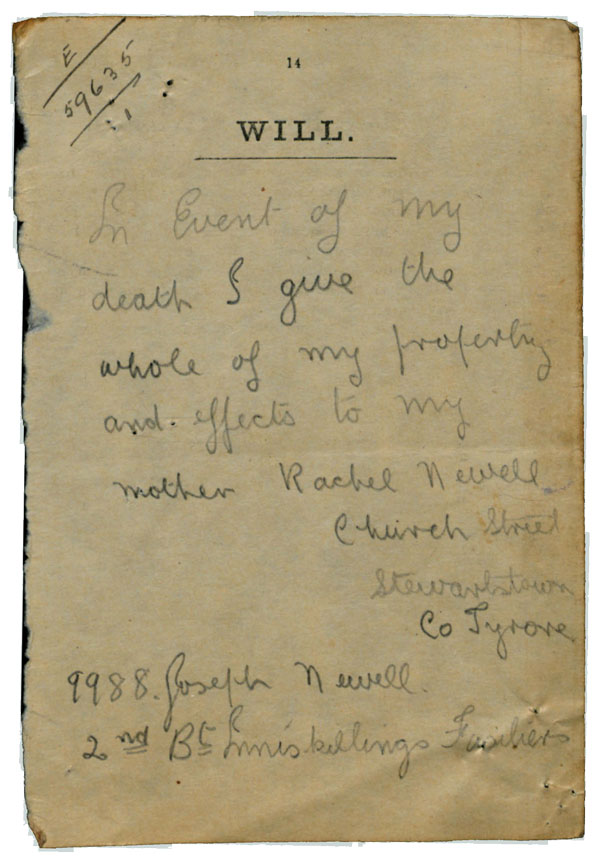 E
59635
1
14
WILL.
In Event of my
death I give the
whole of my property
and effects to my
mother Rachel Newell
Church Street
Stewartstown
Co Tyrone
9988. Joseph Newell.
2nd Bt Inniskillings Fusiliers